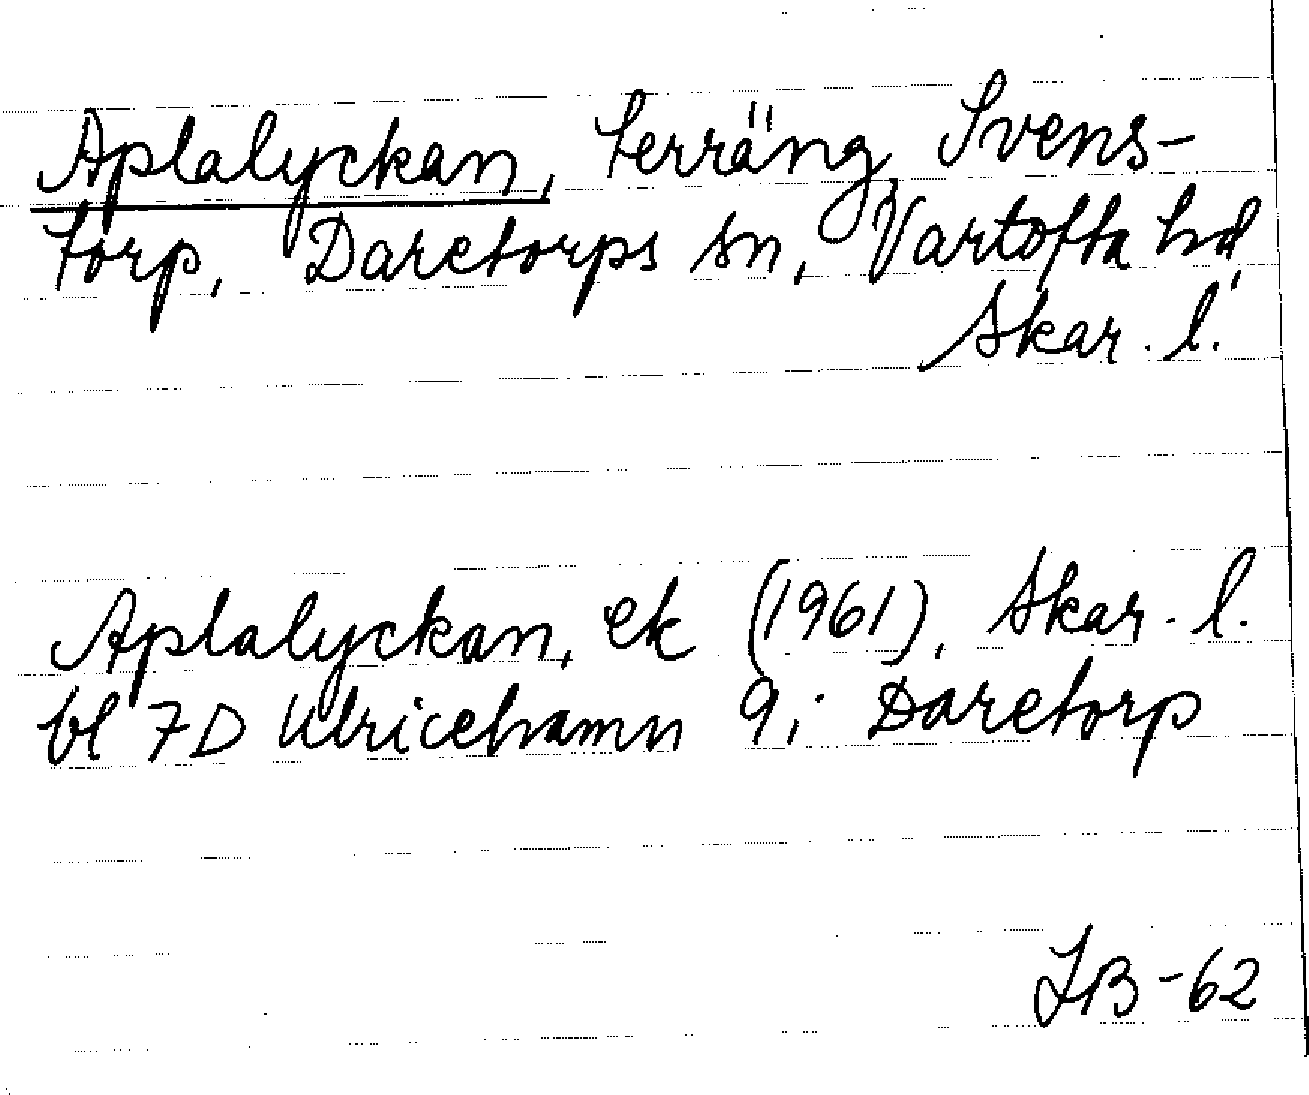 Aplalyckan, terräng, Svens-
torp, Daretorps sn, Vartofta hd,
Skar. l.
Aplalyckan, ek (1961), Skar. l.
bl 7D Ulricehamn 9i Daretorp
IB-62